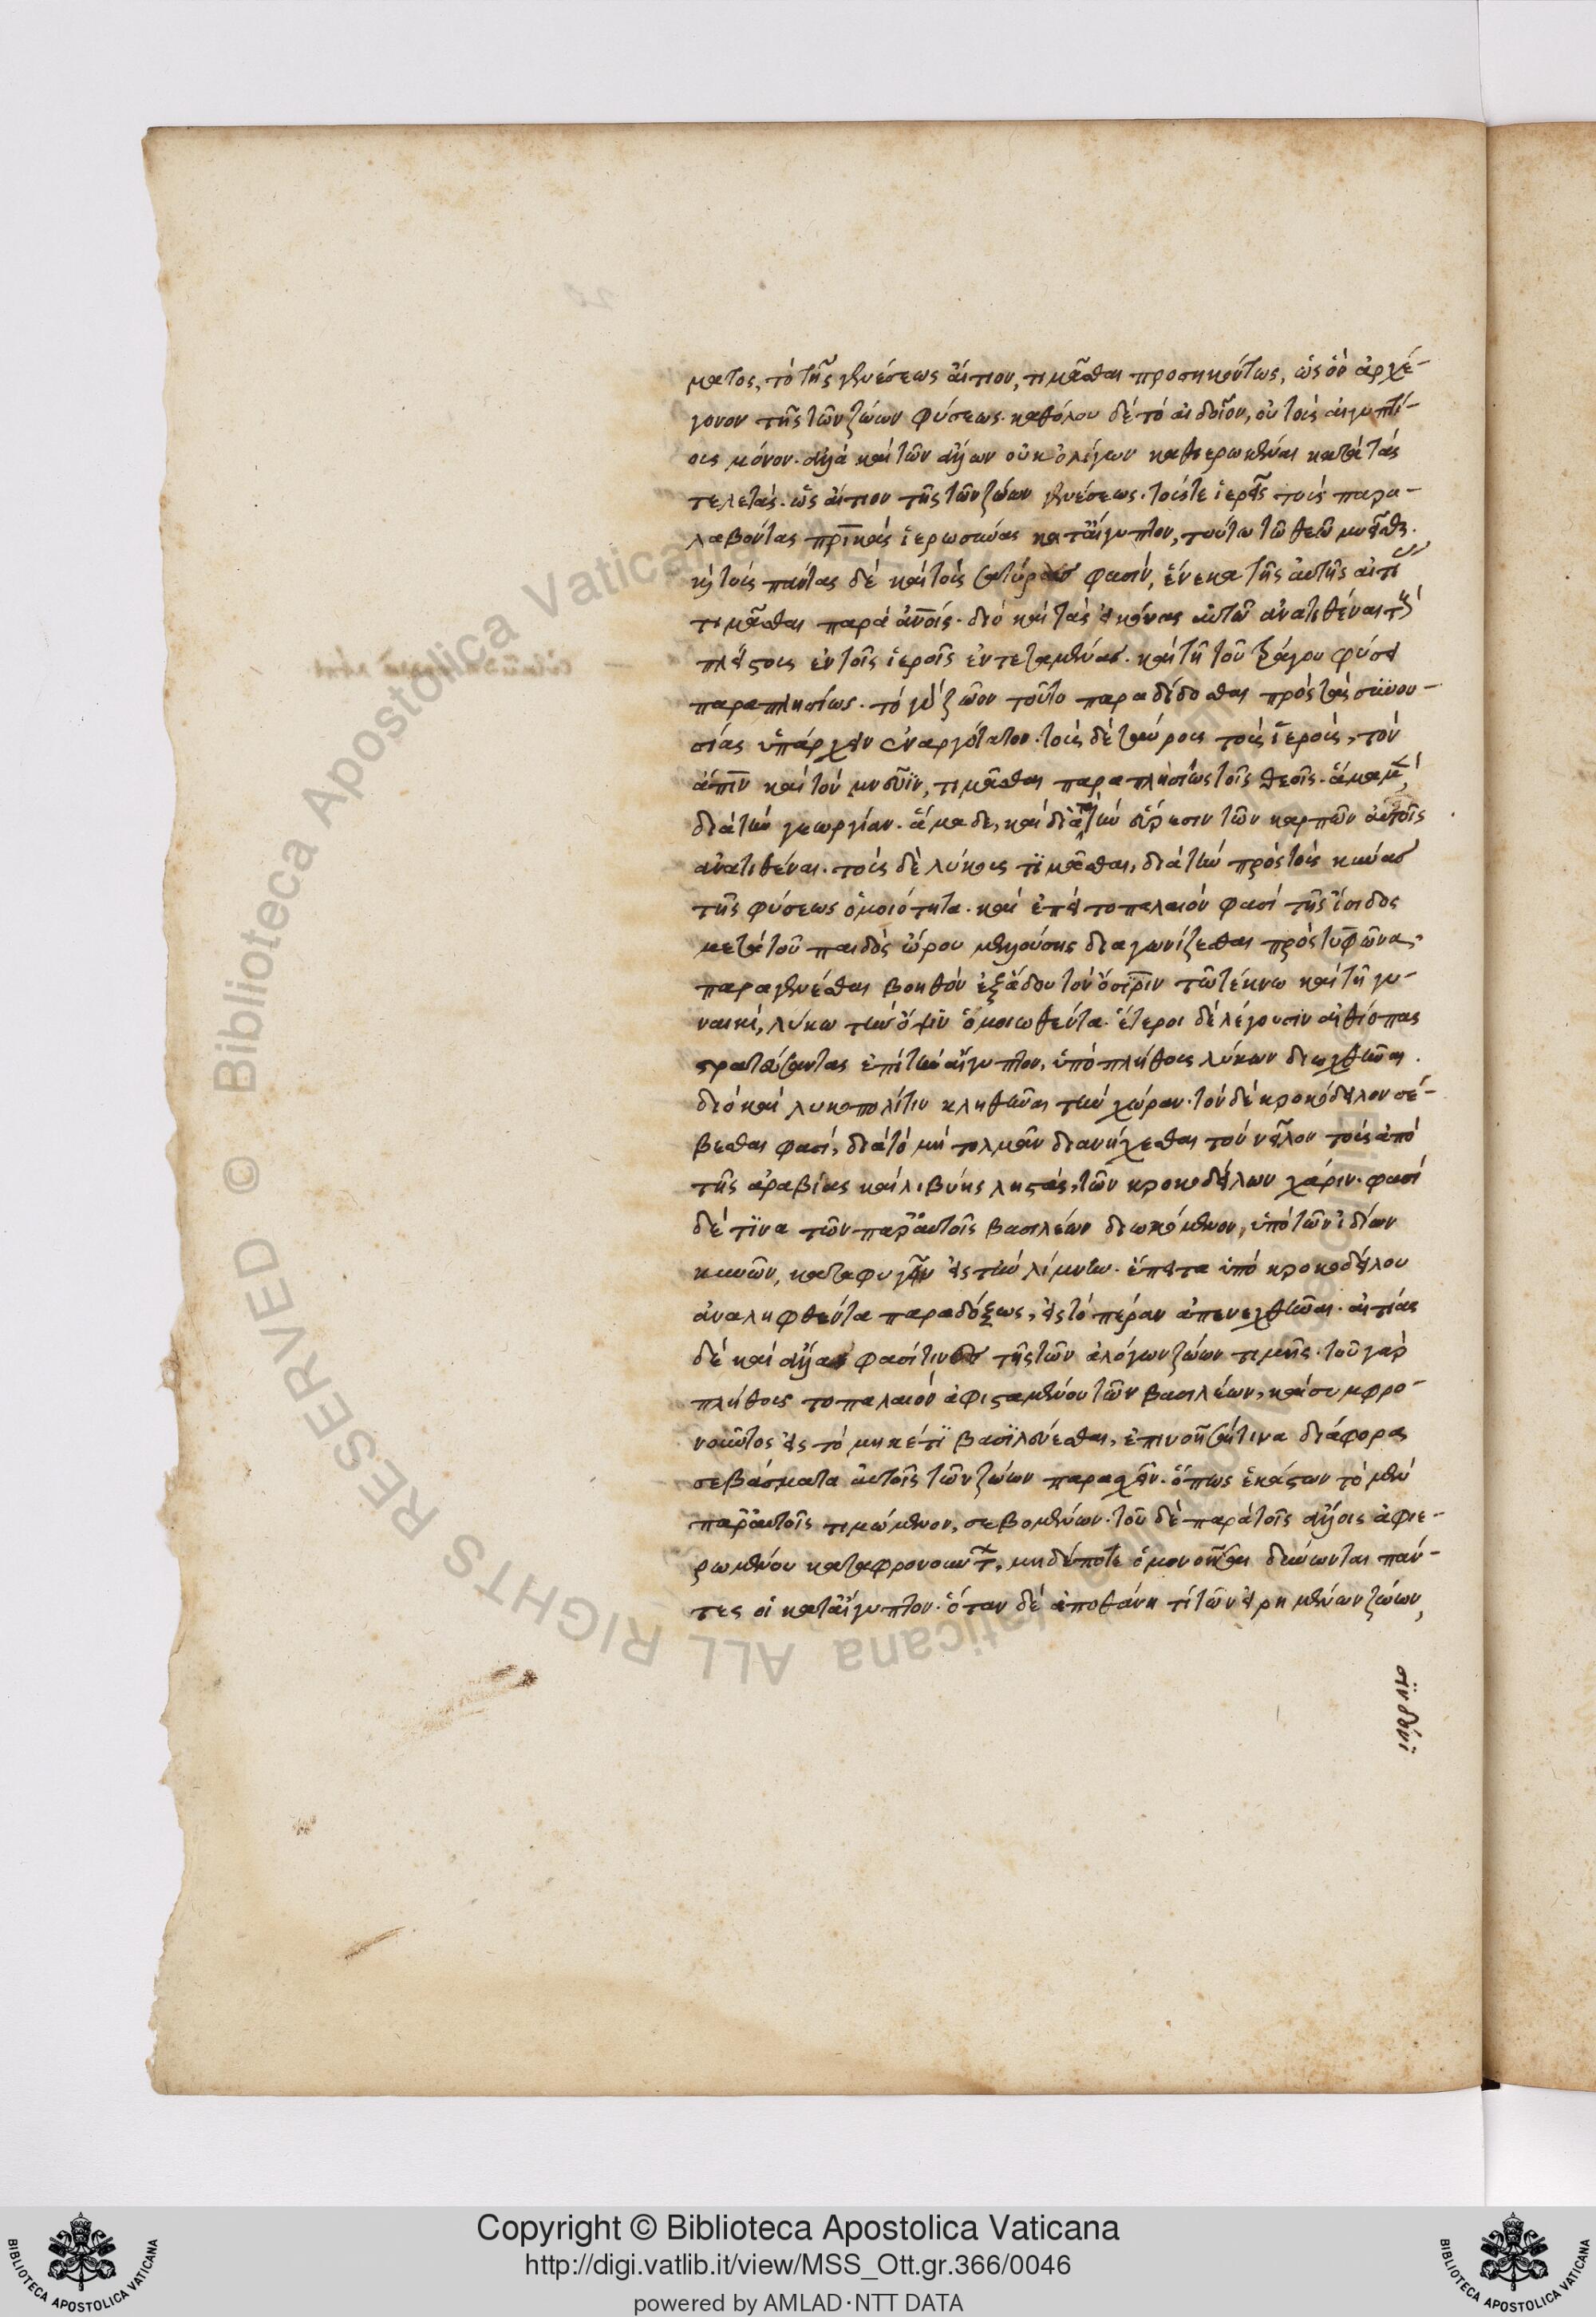 ματος, τὸ τῆς γενέσεως αἴτιον, τιμᾶσθαι προσηκόντως, ὡς ὂν ἀρχέ-
γονον τῆς τῶν ζώων φύσεως. καθόλου δὲ τὸ αἰδοῖον, οὐ τοὺς αἰγυπτί-
ους μόνον. ἀλλὰ καὶ τῶν ἄλλων οὐκ ὀλίγων καθιερωκέναι κατὰ τὰς
τελετάς. ὡς αἴτιον τῆς τῶν ζώων γενέσεως. τούς τε ἱερεῖς τοὺς παρα-
λαβόντας πρικὰς ἱερωσύνας κατ' αἴγυπτον, τούτω τῶ θεῶ μυεῖσθαι.
καὶ τοὺς πάντας δὲ καὶ τοὺς σατύρους φασὶν, ἕνεκα τῆς αὐτῆς αἰτί
τιμᾶσθαι παρὰ ἀνοις. διὸ καὶ τὰς εἰκόνας αὐτῶν ἀνατιθέναι τοὺς
πλείστους ἐν τοῖς ἱεροῖς ἐντεταμένας. καὶ τῆ τοῦ τράγου φύσει
παραπλησίως. τὸ γὰρ ζῶον τοῦτο παραδίδοσθαι πρὸς τὰς συνου-
σίας ὑπάρχειν ἐναργότατον. τοὺς δὲ ταύρους τοὺς ἱερούς, τόν
ἄπιν καὶ τὸν μνεῦϊν, τιμᾶσθαι παραπλησίως τοῖς θεοῖς. ἅμα μὲν
διὰ τὴν γεωργίαν. ἅμα δὲ, καὶ διὰ τὸ τὴν εὕρεσιν τῶν καρπῶν αὐτοῖς
ἀνατιθέναι. τοὺς δὲ λύκους τιμᾶσθαι, διὰ τὴν πρὸς τοὺς κύνας
τῆς φύσεως ὁμοιότητα. καὶ ἐπεὶ τὸ παλαιόν φασὶ τῆς ἴσιδος
μετὰ τοῦ παιδὸς ὥρου μελλούσης διαγωνίζεσθαι πρὸς τυφῶνα,
παραγενέσθαι βοηθὸν ἐξ ἅδου τὸν ὄσιριν τῶ τέκνω καὶ τῆ γυ-
ναικί, λύκω τὴν ὄψιν ὁμοιωθέντα. ἕτεροι δὲ λέγουσιν αἰθίοπας
στρατεύσαντας ἐπὶ τὴν αἴγυπτον, ὑπὸ πλήθους λύκων διωχθῆναι.
διὸ καὶ λυκοπολίτιν κληθῆναι τὴν χώραν. τὸν δὲ κροκόδειλον σέ-
βεσθαι φασί, διὰ τὸ μὴ τολμᾶν διανήχεσθαι τὸν νεῖλον τοὺς ἀπὸ
τῆς ἀραβίας καὶ λιβύης ληστάς, τῶν κροκοδείλων χάριν. φασὶ
δέ τινα τῶν παρ' αὐτοῖς βασιλέων διωκόμενον, ὑπὸ τῶν ἰδίων
κυνῶν, καταφυγεῖν εἰς τὴν λίμνην. ἔπειτα ὑπὸ κροκοδείλου
ἀναληφθέντα παραδόξως, εἰς τὸ πέραν ἀπενεχθῆναι. αἰτίας
δὲ καὶ ἄλλας φασί τινες τῆς τῶν ἀλόγων ζώων τιμῆς. τοῦ γὰρ
πλήθους τὸ παλαιὸν ἀφισταμένου τῶν βασιλέων, καὶ συμφρο-
νοῦντος εἰς τὸ μηκέτι βασιλεύεσθαι, ἐπινοῆσαί τινα διάφορα
σεβάσματα αὐτοῖς τῶν ζώων παρασχεῖν. ὅπως ἑκάστων τὸ μὲν
παρ' αὐτοῖς τιμώμενον, σεβομένων. τοῦ δὲ παρὰ τοῖς ἄλλοις ἀφιε-
ρωμένου καταφρονούντων, μηδέποτε ὁμονοῆσαι δύνωνται πάν-
τες οἱ κατ' αἴγυπτον. ὅταν δὲ ἀποθάνη τὶ τῶν εἰρημένων ζώων,
σϊνδόνϊ
Copyright © Biblioteca Apostolica Vaticana
http://digi.vatlib.it/view/MSS_Ott.gr.366/0046
powered by AMLAD·NTT DATA